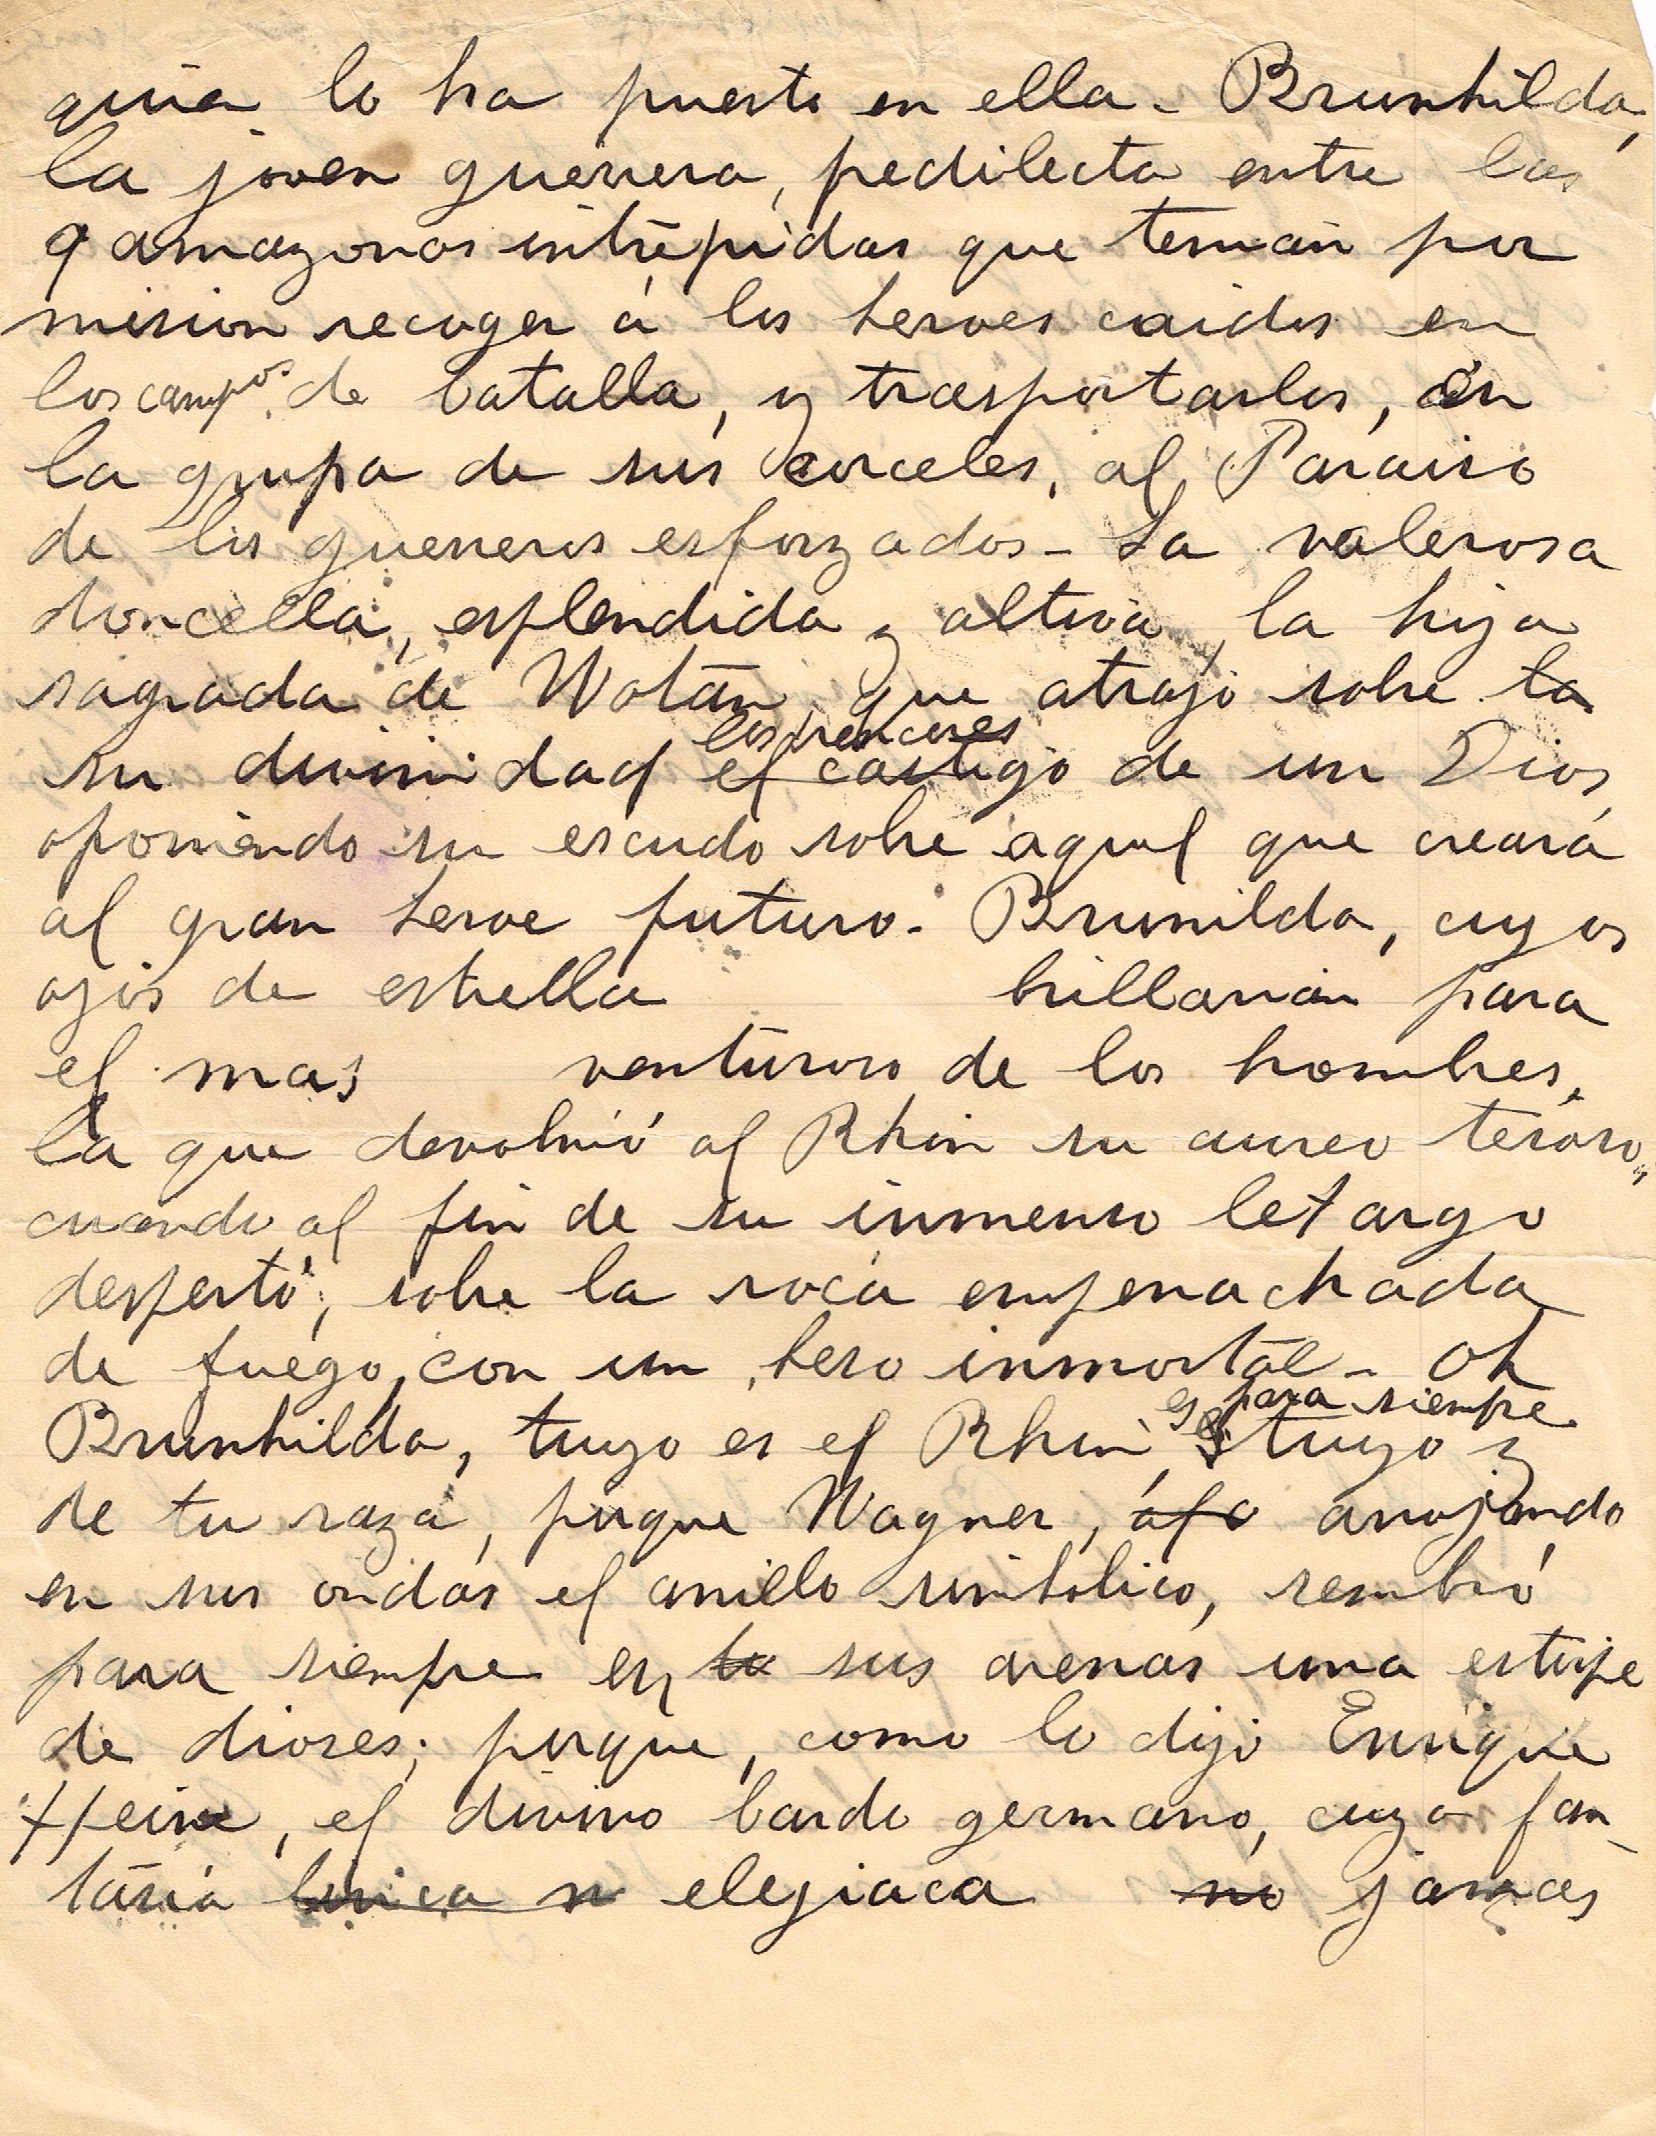 quien lo ha puesto en ella - Brunhilda,
la joven guerrera, predilecta entre las
9 amazonas intrépidas que tenian por
mision recoger á los heroes caidos en
los campos de batalla, y trasportarlos, en
la grupa de sus corceles, al Paraiso
de los guerreros esforzados - La valerosa
doncella, esplendida y altiva, la hija
sagrada de Wotan, que atrajo sobre la
los rencores
su divinidad el castigo de un Dios,
oponiendo su escudo sobre aquel que creará
al gran heroe futuro. Brunilda, cuyos
ojos de estrella brillarian para
el mas venturoso de los hombres,
la que devolvió al Rhin su aureo tesoro,
cuando al fin de su inmenso letargo
despertó, sobre la roca empenachada
de fuego, con un beso inmortal - Oh
es para siempre
Brunhilda, tuyo es el Rhin, tuyo y
de tu raza, porque Wagner, arrojando
en sus ondas el anillo simbolico, sembró
para siempre en la sus arenas una estirpe
de dioses; porque, como lo dijo Enrique
Heine, el divino bardo germano, cuya fan-
tasia lirica n elegiaca no jamas